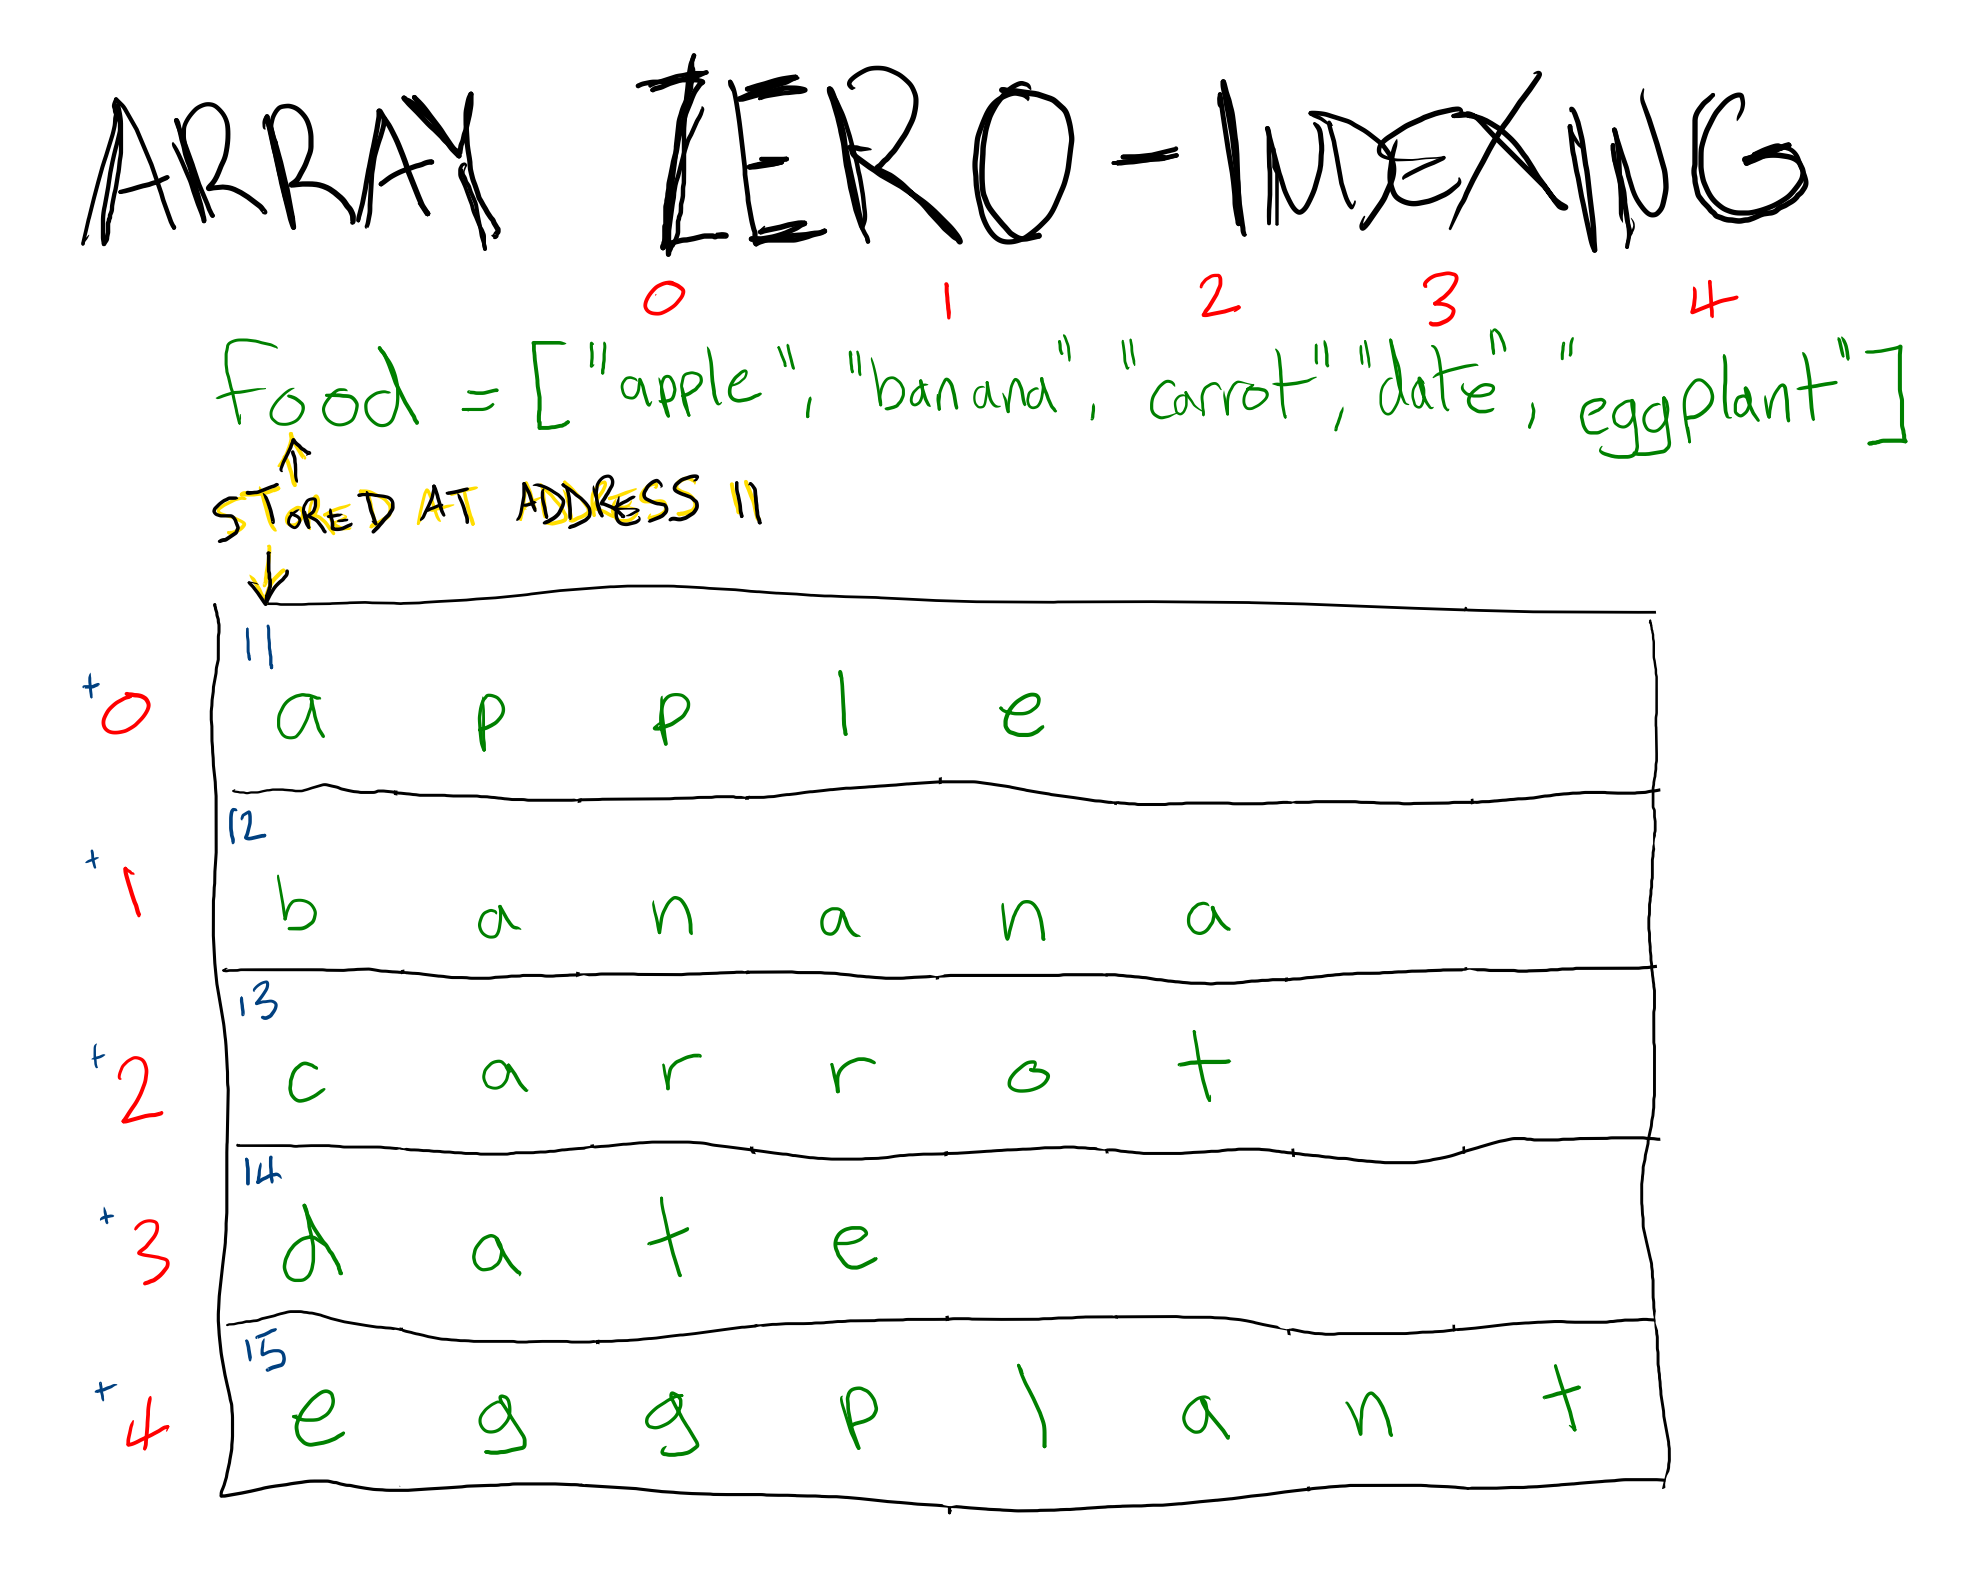 ARRAY ZERO-INDEXING
0 1 2 3 4
food = ["apple", "banana", "carrot", "date", "eggplant"]
STORED AT ADDRESS 11
11
+0 a p p l e
12
+1 b a n a n a
13
+2 c a r r o t
14
+3 d a t e
15
+4 e g g p l a n t